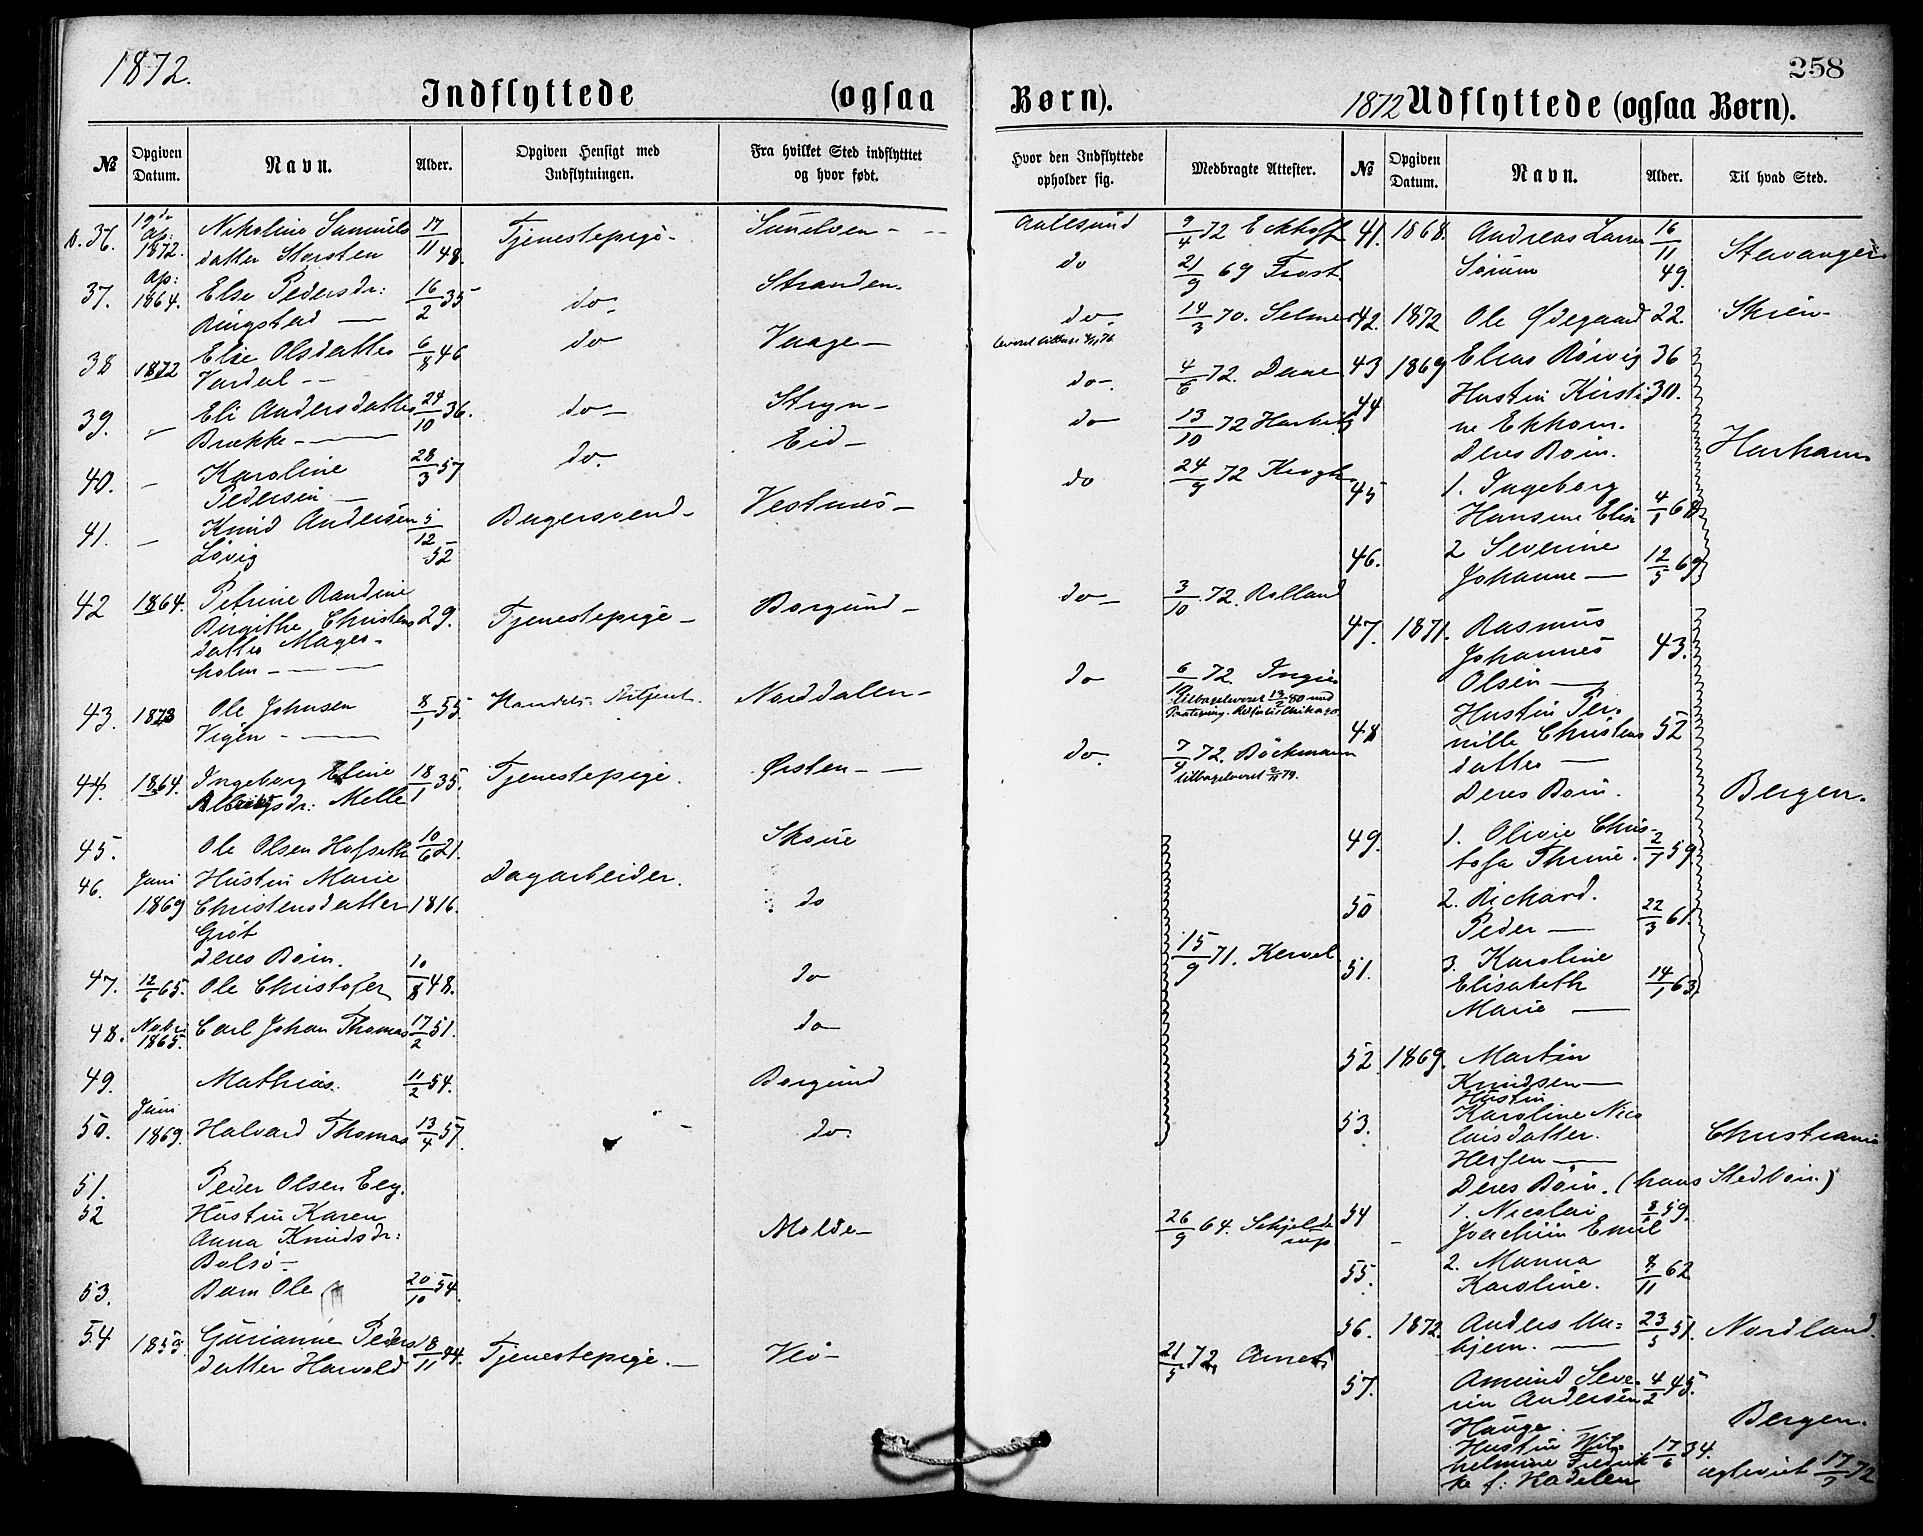 1872.
Indflyttede (ogsaa
№
Opgiven Datum.
Navn.
Alder.
Opgiven Hensigt med Indflytningen.
Fra hvilket Sted indflytttet og hvor født.
36. 1872. Nikoline Samuels 17/11 48. Tjenestepige - Sunelven -
datter Storsten
37. Ap: 1864. Else Pedersdr: 16/2 35 do. Stranden.
Ringstad
38 1872 Elie Olsdatter 6/8 46 do Vaage -
Vardal - -
39. Eli Andersdatter 24/10 36. do - Stryn -
Brække -
40. - Karoline 28/3 57 do. Eid -
Pedersen -
41. - Knud Andersen 5/12 52 Bagersvend - Vestnes -
Løvig
42 1864. Petrine Randine 29. Tjenestepige - Borgund -
Birgithe Christens
datter Mager-
holm -
43. 1873 Ole Johnsen 8/1 55. Handels- Norddalen -
Vigen -
44. 1864. Ingeborg Eline 18/1 35. Tjenestepige. Ørsten -
Melle
45. Ole Olsen Hofseth 10/6 21. Skoue
46. Juni 1869 Hustru Marie Dagarbeider.
Christensdatter 1816. do
Grøt
Deres Børn.
47. 12/6 65. Ole Christofer 10/8 48. do
48. Novbr 1865. Carl Johan Thomas 17/2 51. do
49. Mathias. 11/2 54. Borgund
50. Juni 1869. Halvard Thomas 13/4 57. do.
51. Peder Olsen Eeg.
52 Hustru Karen
Anna Knudsdr: Molde -
Bolsø -
53. Barn Ole 20/10 54.
54 1859. Gurianne Peders 8/11 44. Tjenestepige. - Veø -
datter Harvold
258
Børn).
Hvor den Indflyttede opholder sig.
Medbragte Attester.
Aalesund 9/4 72 Eckhoff
do 21/9 69 Frost
do 14/3 70. Selmer
do. 4/6 72. Daae
do 13/10 72 Harbitz
do 24/9 72 Krogh
do - 3/10 72. Rolland
do 6/10 72. Ingier
Tilbageleveret
do. 7/4 72. Böckmann
tilbageleveret
15/9 71. Kervel
26/9 64. Schjelde
rup
21/5 72
1872 Udflyttede (ogsaa Børn).
№
Opgiven Datum.
Navn.
Alder.
Til hvad Sted.
41. 1868. Andreas Larsen 16/11 49. Stavanger.
Sørum
42. 1872 Ole Ødegaard 22. Skien -
43 1869 Elias Rørvig 36
44 Hustru Kirsti 30.
ne Ekhorn.
Deres Børn. Harham
45 1. Ingeborg
Hansine Elise 4/1 68
46. 2 Severine
Johanne - 12/5 69
47. 1871. Rasmus
Johannes 43.
Olsen -
48 Hustru Per-
nille Christens 52
datter -
Deres Børn. Bergen.
49. 1. Olivie Chris-
tofa Thrine. 2/7 59
50 2. Richard.
Peder - 22/3 61.
51. 3. Karoline
Elisabeth 14/1 63.
Marie -
52 1869. Martin
Knudsen -
53. Hustru
Karoline Nico
laisdatter. Christiania
Hersen -
Deres Børn. (hans Stedbørn.)
54 1. Nicolai 8/ 59.
Joachim Emil
55. 2. Manna 8/11 62
Karoline.
56. 1872. Anders Un- 23/5 51. Nordland.
hjem. -
57. Amund Seve- 4/2 45.
rin Andersen
Hauge. - Bergen.
Hustru Wil- 17/6 34.
helmine Fredrik
ke f: Kadelen ægteviet 17/ 72